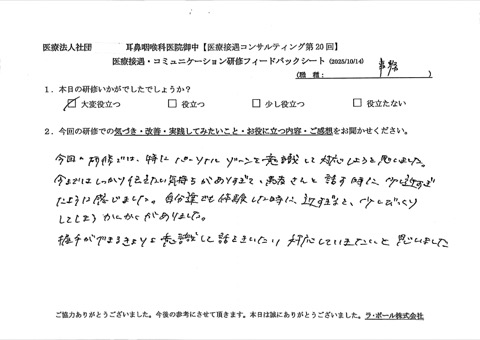 医療法人社団 耳鼻咽喉科医院御中【医療接遇コンサルティング第20回】
医療接遇・コミュニケーション研修フィードバックシート (2025/10/14)
(職種: 事務)
1．本日の研修いかがでしたでしょうか？
☑大変役立つ □役立つ □少し役立つ □役立たない
2．今回の研修での気づき・改善・実践してみたいこと・お役に立つ内容・ご感想をお聞かせください。
今回の研修では、特にパーソナルゾーンを意識して対応しようと思いました。
今まではしっかり伝えたい気持ちがありすぎて、患者さんと話す時に少し近すぎ
たように感じました。自分達でも体験した時に近すぎると、少しびっくり
してしまうかんかくがありました。
相手が 意識して話をきいたり対応していきたいと思いました
ご協力ありがとうございました。今後の参考にさせて頂きます。本日は誠にありがとうございました。ラ・ポール株式会社